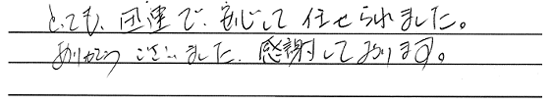 とても、迅速で、安心して任せられました。
ありがとうございました。感謝しております。